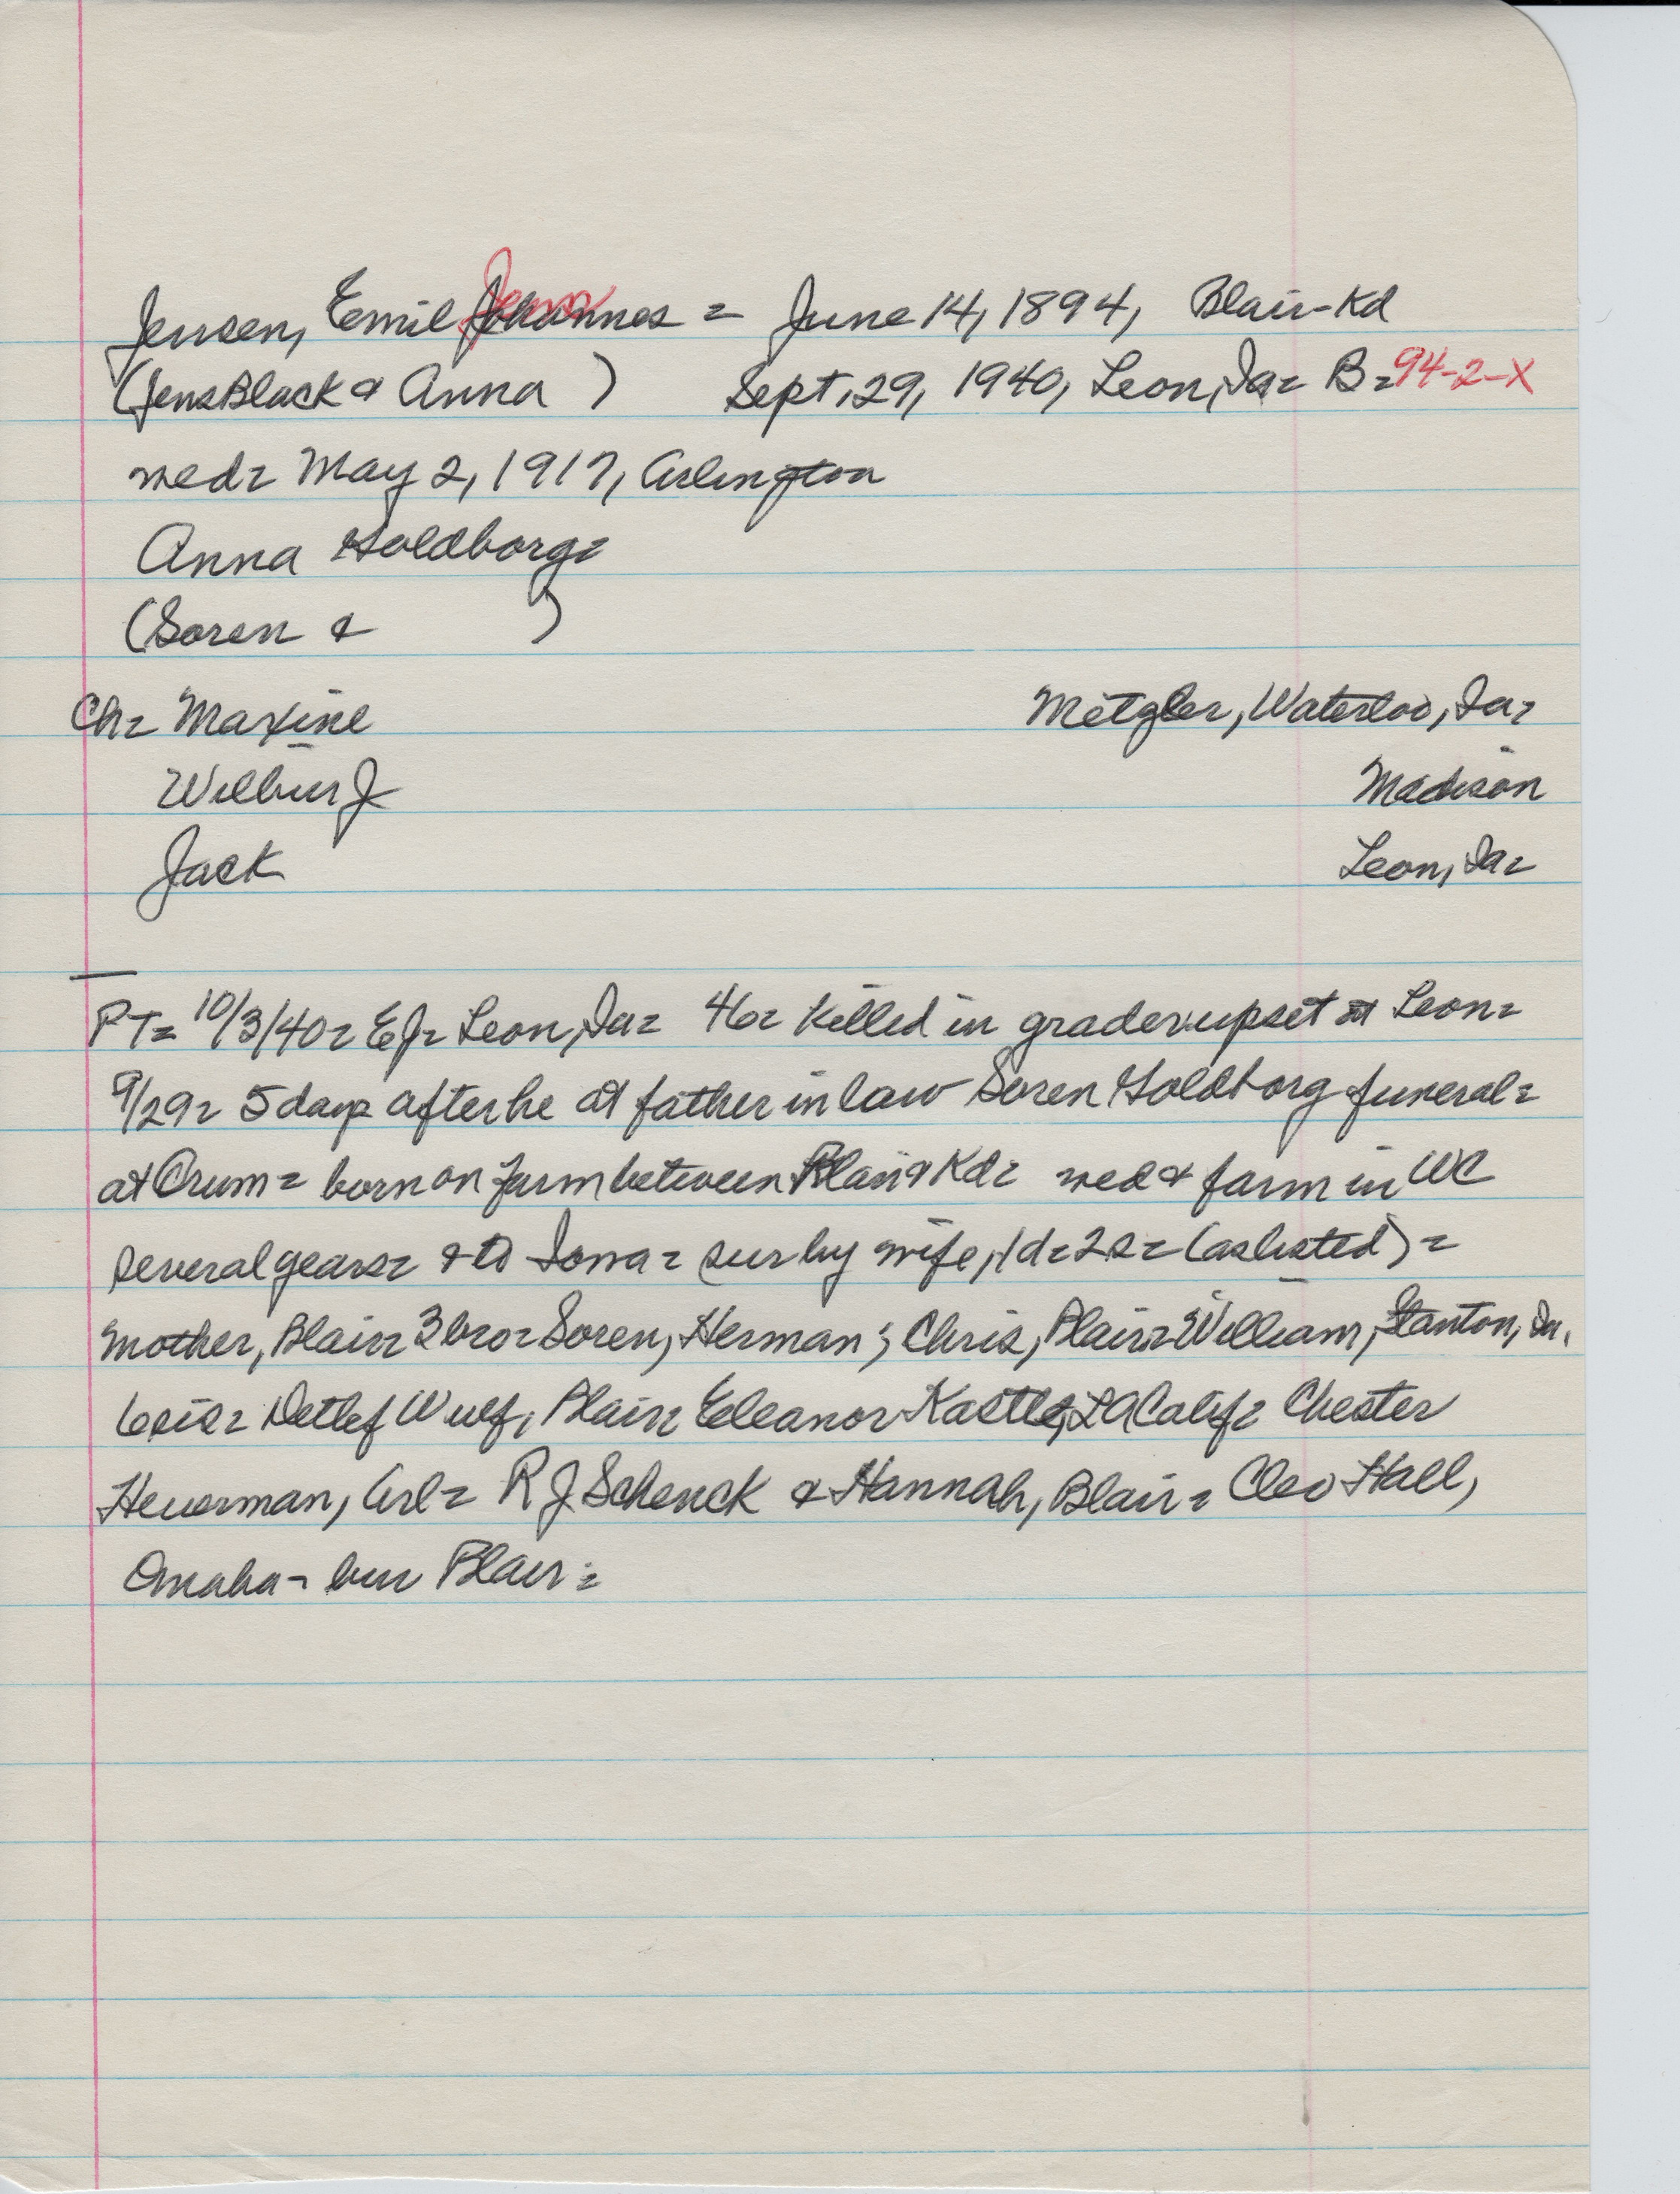 Jensen, Emil Johannes = June 14, 1894, Blair-Kd
(Jens Black & Anna ) Sept. 29, 1940, Leon, Ia = B = 94-2-X
wed = May 2, 1917, Arlington
Anna Goldborg =
(Soren & )
Ch = Maxine Metzler, Waterloo, Ia =
Wilbur J Madison
Jack Leon, Ia =
PT = 10/3/40 = EJ = Leon, Ia = 46 = killed in grader upset at Leon =
9/29 = 5 days after he at father in law Soren Goldborg funeral =
at Orum = born on farm between Blair & Kd = wed & farm in WC
several years = & to Iowa = sur by wife, 1d = 2s = (as listed) =
mother, Blair = 3 bro = Soren, Herman; Chris, Blair = William, Stanton, Ia.
6 sis = Detlef Wulf, Blair = Eleanor Kastle, LA Calif = Chester
Heuerman, Arl = R J Schenck & Hannah, Blair = Cleo Hall,
Omaha - bur Blair =